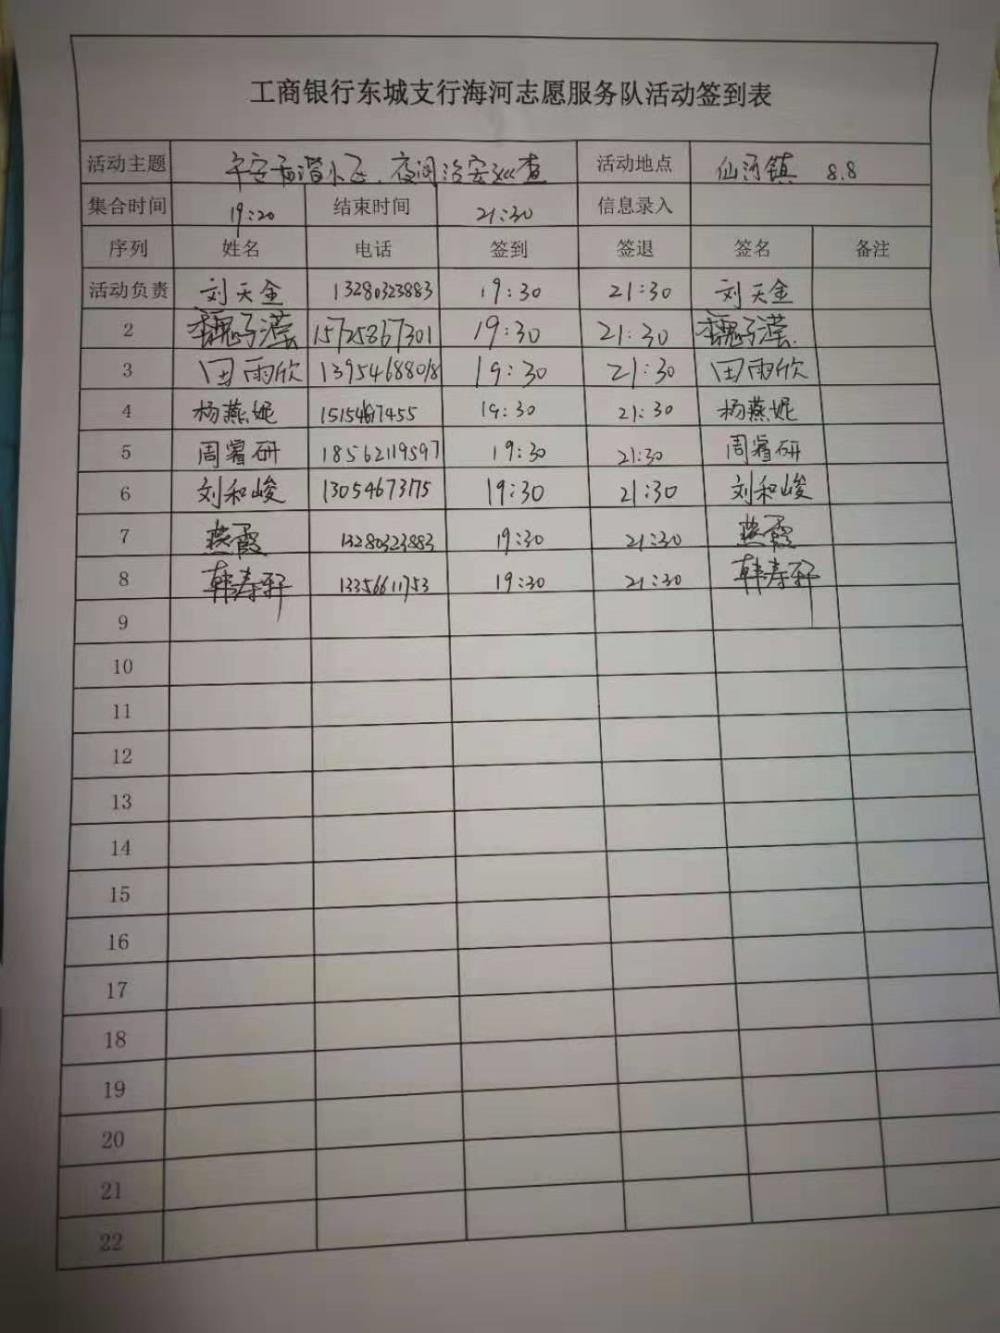 工商银行东城支行海河志愿服务队活动签到表
活动主题 平安和谐小区、夜间治安巡查 活动地点 仙河镇 8.8
集合时间 19:20 结束时间 21:30 信息录入
序列 姓名 电话 签到 签退 签名 备注
活动负责 刘天金 13280323883 19:30 21:30 刘天金
2 15725867301 19:30 21:30
3 田雨欣 13954688018 19:30 21:30 田雨欣
4 杨燕妮 19:30 21:30 杨燕妮
5 周睿研 18562119597 19:30 21:30 周睿研
6 刘和峻 13054673175 19:30 21:30 刘和峻
7 燕霞 13280323883 19:30 21:30 燕霞
8 韩寿轩 13356611753 19:30 21:30 韩寿轩
9
10
11
12
13
14
15
16
17
18
19
20
21
22